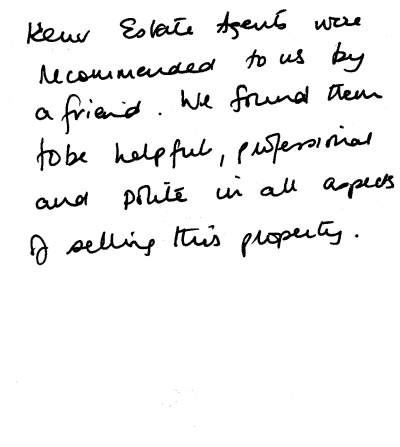 Estate Agents were
recommended to us by
a friend. We found them
to be helpful, professional
and polite in all aspects
of selling this property.